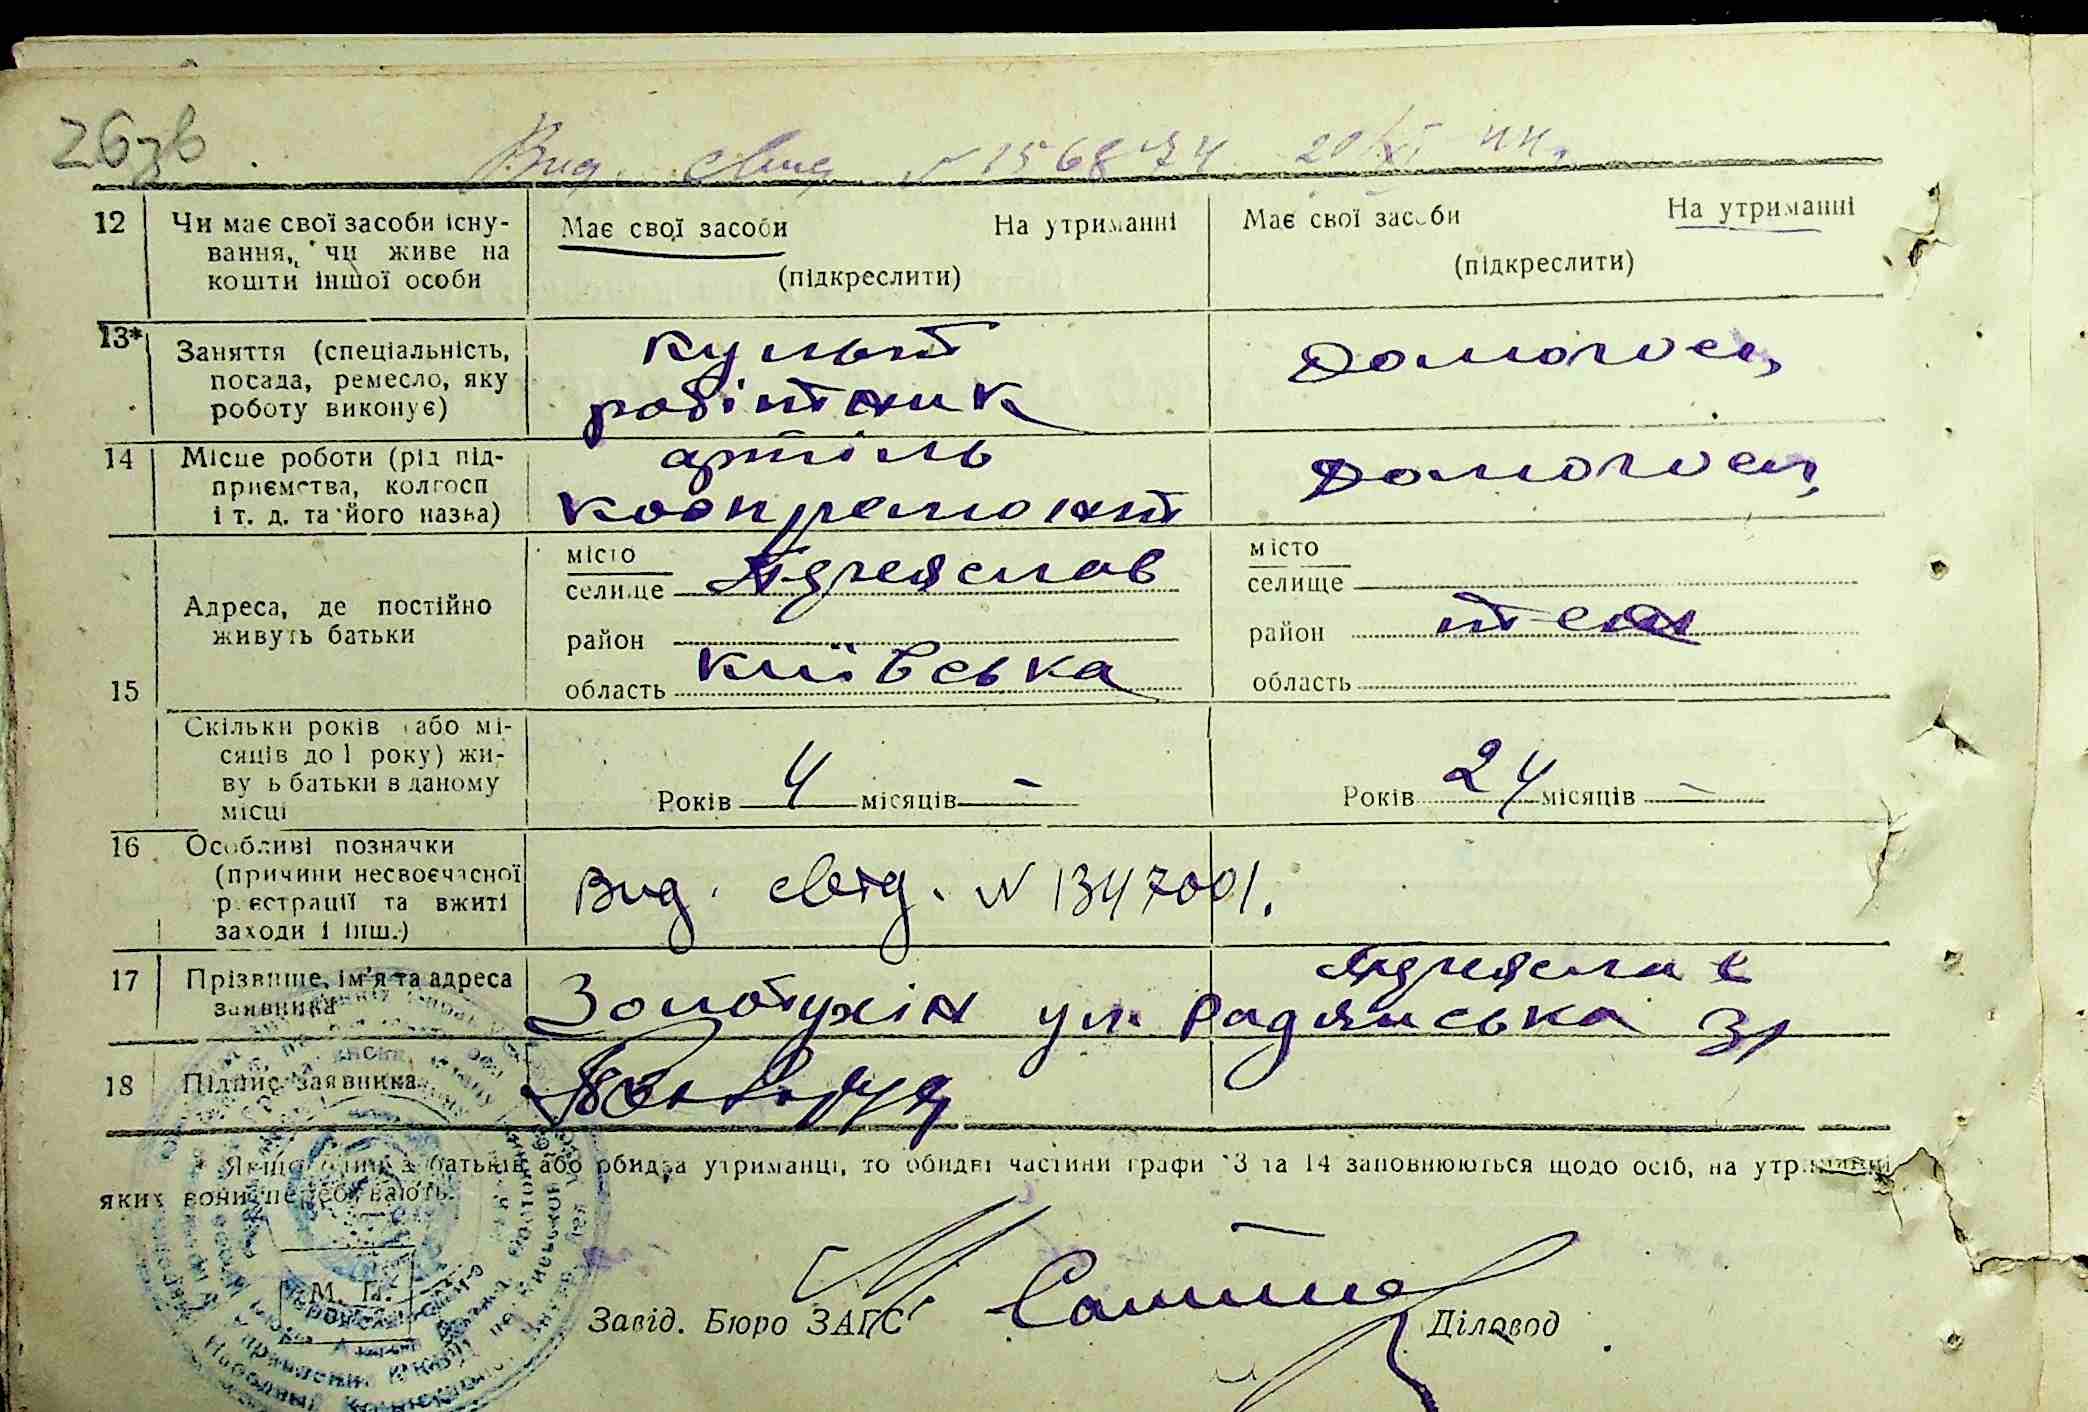 26зв
Вид. свид. N 1568874 20/XI 44 г.
12 Чи має свої засоби існу- Має свої засоби На утриманні Має свої засоби На утриманні
вання, чи живе на (підкреслити) (підкреслити)
кошти іншої особи
13* Заняття (спеціальність, Культ Домогосп,
посада, ремесло, яку робітник
роботу виконує)
14 Місце роботи (рід під- артіль Домогосп,
приємства, колгосп Коопремонт
і т. д. та його назва)
15 Адреса, де постійно місто місто
живуть батьки селище Переяслав селище
район район теж
область Київська область
Скільки років (або мі-
сяців до 1 року) жи-
вуть батьки в даному Років 4 місяців – Років 24 місяців –
місці
16 Особливі позначки
(причини несвоєчасної Вид. свид. N 1347001.
реєстрації та вжиті
заходи і інш.)
17 Прізвище, ім'я та адреса Переяслав
заявника Золотухін ул. Радянська 31
18 Підпис заявника
* Якщо один з батьків або обидва утриманці, то обидві частини графи 13 та 14 заповнюються щодо осіб, на утриманні
яких вони перебувають.
М. П.
Завід. Бюро ЗАГС Діловод